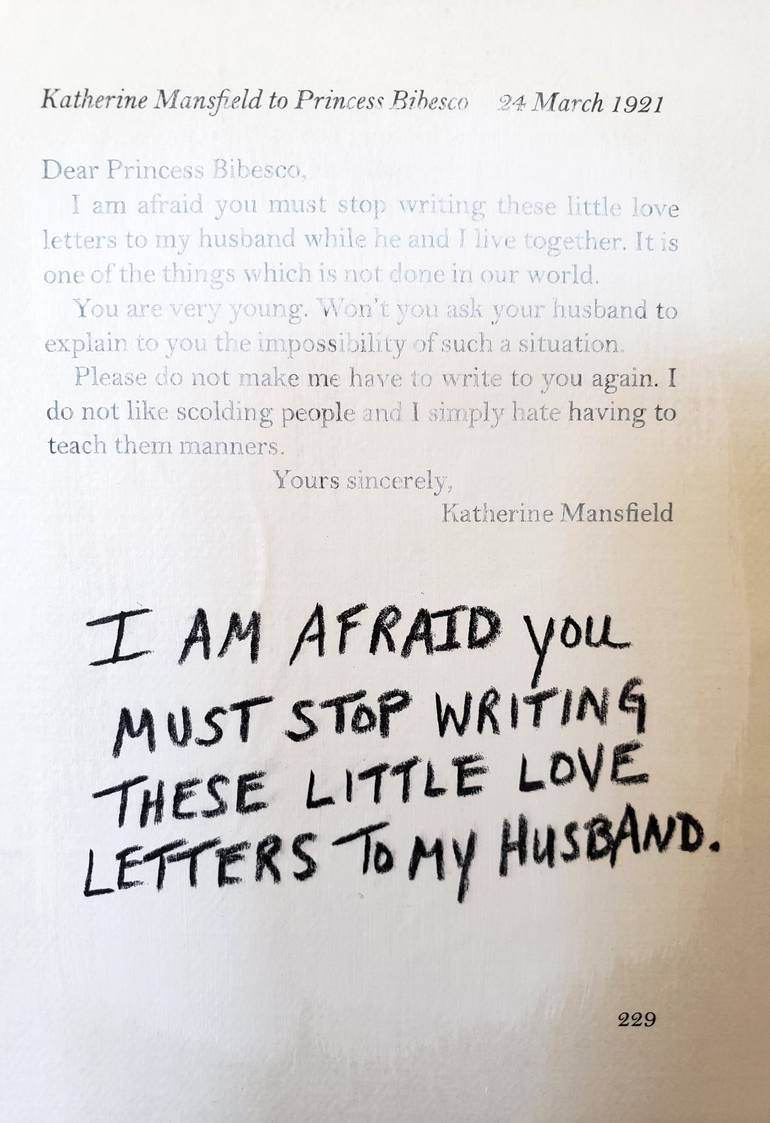 Katherine Mansfield to Princess Bibesco 24 March 1921
Dear Princess Bibesco,
I am afraid you must stop writing these little love
letters to my husband while he and I live together. It is
one of the things which is not done in our world.
You are very young. Won't you ask your husband to
explain to you the impossibility of such a situation.
Please do not make me have to write to you again. I
do not like scolding people and I simply hate having to
teach them manners.
Yours sincerely,
Katherine Mansfield
I AM AFRAID you
MUST STOP WRITING
THESE LITTLE LOVE
LETTERS TO MY HUSBAND.
229